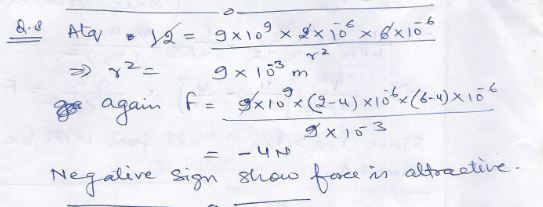 Q.8 Atq 12 = 9×10⁹ × 2×10⁻⁶ × 6×10⁻⁶ / r²
⇒ r² = 9×10⁻³ m
again F = 9×10⁹×(2-4)×10⁻⁶×(6-4)×10⁻⁶ / 9×10⁻³
= -4N
Negative sign show force is attractive.